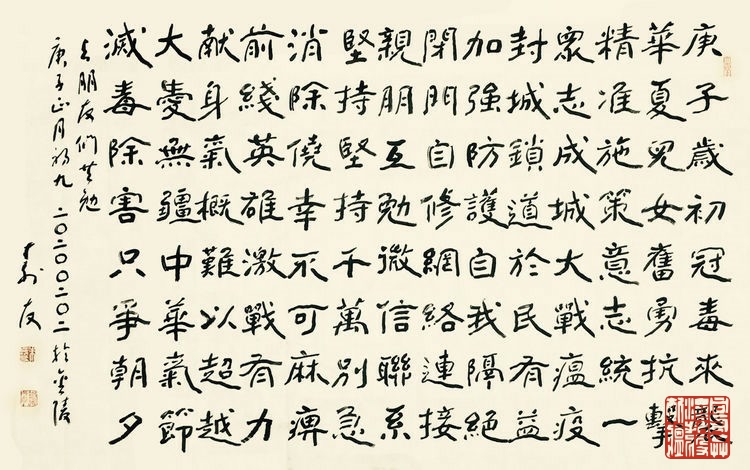 庚子歲初冠毒來襲
華夏兒女奮勇抗擊
精准施策意志統一
衆志成城大戰瘟疫
封城鎖道於民有益
加強防護自我隔絕
閉門自修網絡連接
親朋互勉微信聯系
堅持堅持千萬別急
消除僥幸不可麻痹
前綫英雄激戰有力
献身氣概難以超越
大愛無疆中華氣節
滅毒除害只爭朝夕
与朋友們共勉
庚子正月初九 二〇二〇〇二〇二於金陵
友